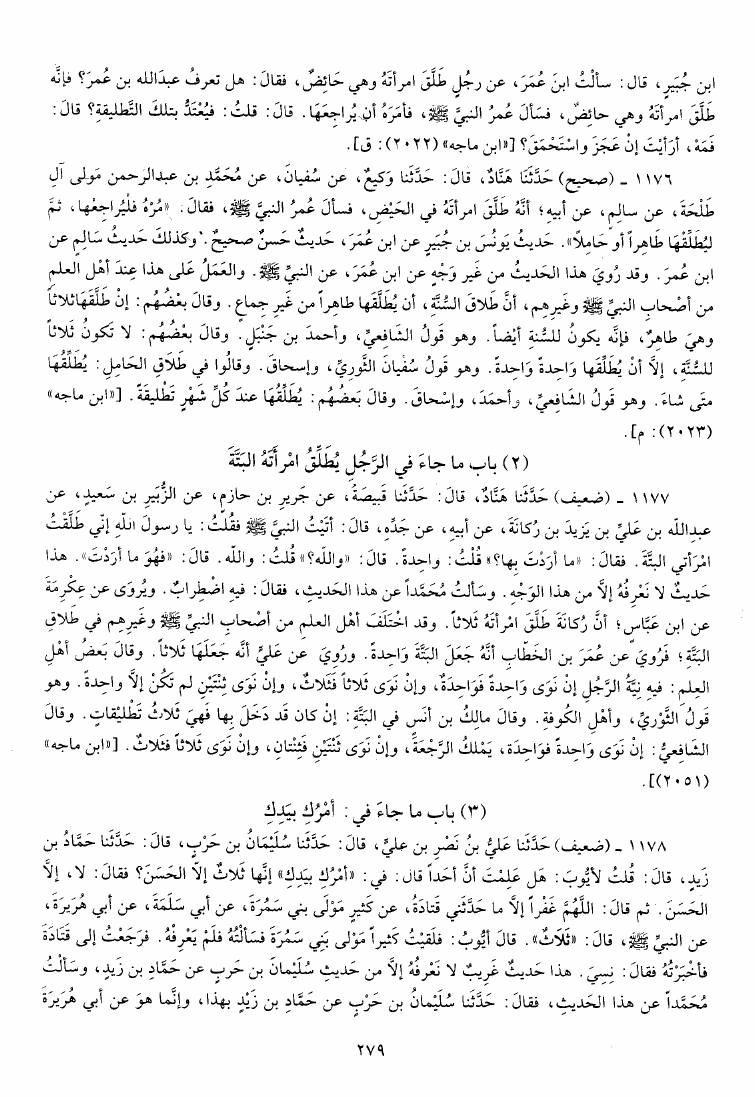 ابن جُبَيرٍ، قال: سألْتُ ابنَ عُمَرَ، عن رجُلٍ طَلَّقَ امرأتَهُ وهي حَائِضٌ، فقالَ: هل تعرفُ عبدَالله بن عُمرَ؟ فإنَّه
طَلَّقَ امرأتَهُ وهي حائِضٌ، فسَألَ عُمرُ النبيَّ ﷺ، فأمَرَهُ أن يُراجِعَهَا. قالَ: قلتُ: فيُعْتَدُّ بتلكَ التَّطليقةِ؟ قالَ:
فَمَهْ، أرَأيْتَ إنْ عَجَزَ واسْتَحْمَقَ؟ [«ابن ماجه» (٢٠٢٢): ق].
١١٧٦ ـ (صحيح) حَدَّثَنَا هَنَّادٌ، قالَ: حَدَّثَنا وَكيعٌ، عن سُفيانَ، عن مُحَمَّدِ بن عبدالرحمن مَولى آلِ
طَلْحَةَ، عن سالِمٍ، عن أبيهِ؛ أنَّهُ طَلَّقَ امرأتَهُ في الحَيْضِ، فسألَ عُمرُ النبيَّ ﷺ، فقالَ: «مُرْهُ فلْيُراجِعْها، ثمَّ
ليُطَلِّقْهَا طَاهِراً أو حَامِلاً». حَديثُ يونُسَ بن جُبَيرٍ عن ابن عُمَرَ، حَديثٌ حَسنٌ صحيحٌ. وكذلكَ حَديثُ سَالِمٍ عن
ابن عُمرَ. وقد رُويَ هذا الحَديثُ من غَير وَجْهٍ عن ابن عُمَرَ، عن النبيِّ ﷺ. والعَمَلُ عَلى هذا عِندَ أهْل العلم
من أصْحابِ النبيِّ ﷺ وغَيرِهِم، أنَّ طَلاقَ السُّنَّةِ، أن يُطَلِّقَها طاهراً من غَيرِ جِماعٍ. وقالَ بعْضُهُم: إنْ طَلَّقَهَا ثلاثاً
وهيَ طاهِرٌ، فإنَّه يكونُ للسُّنةِ أيْضاً. وهو قَولُ الشَّافعيِّ، وأحمدَ بن حَنْبَلٍ. وقالَ بعْضُهُم: لا تَكونُ ثَلاثاً
للسُّنَّةِ، إلَّا أنْ يُطَلِّقَها وَاحِدةً وَاحِدةً. وهو قَولُ سُفيانَ الثَّوريِّ، وإسحاقَ. وقالُوا في طَلَاقِ الحَامِلِ: يُطَلِّقُهَا
متَى شاءَ. وهو قَولُ الشَّافعيِّ، وأحمَدَ، وإسْحاقَ. وقالَ بعضُهُم: يُطَلِّقُها عندَ كُلِّ شَهْرٍ تَطْليقَةً. [«ابن ماجه»
(٢٠٢٣): م].
(٢) باب ما جاءَ في الرَّجُلِ يُطَلِّقُ امْرأتَهُ البَتَّةَ
١١٧٧ ـ (ضعيف) حَدَّثَنا هَنَّادٌ، قالَ: حَدَّثَنا قَبيصَةُ، عن جَريرِ بن حازِمٍ، عن الزُّبَيرِ بن سَعيدٍ، عن
عبدالله بن عَليِّ بن يَزيدَ بن رُكانَةَ، عن أبيهِ، عن جَدِّهِ، قالَ: أتَيْتُ النبيَّ ﷺ فقُلتُ: يا رسولَ اللهِ إنّي طَلَّقْتُ
امْرَأتي البتَّةَ. فقالَ: «ما أرَدْتَ بِها؟» قُلْتُ: واحدةً. قالَ: «واللهِ؟» قُلتُ: واللهِ. قالَ: «فهُوَ ما أرَدْتَ». هذا
حَديثٌ لا نَعْرِفُهُ إلاَّ من هذا الوَجْهِ. وسَألتُ مُحَمَّداً عن هذا الحَديثِ، فقالَ: فيهِ اضْطِرابٌ. ويُروَى عن عِكْرِمَةَ
عن ابن عَبَّاسٍ؛ أنَّ رُكَانَةَ طَلَّقَ امْرأتَهُ ثلاثاً. وقد اخْتَلَفَ أهْل العلم من أصْحابِ النبيِّ ﷺ وغَيرِهِم في طَلاقِ
البَتَّةِ؛ فَرُويَ عن عُمَرَ بن الخَطَّابِ أنَّهُ جَعَلَ البَتَّةَ وَاحِدةً. ورُويَ عن عَليٍّ أنَّه جَعَلَها ثَلاثاً. وقالَ بَعضُ أهْلِ
العِلمِ: فيه نِيَّةُ الرَّجُلِ إنْ نَوَى وَاحِدةً فَوَاحِدَةٌ، وإنْ نَوَى ثَلاثاً فَثَلاثٌ، وإنْ نَوَى ثِنْتَيْنِ لم تَكُنْ إلاَّ واحدةً. وهو
قَولُ الثَّوْريِّ، وأهْلِ الكُوفةِ. وقالَ مالِكُ بن أنَسٍ في البَتَّةِ: إنْ كان قَد دَخَلَ بِها فَهيَ ثَلاثُ تَطْليقاتٍ. وقالَ
الشَافعيُّ: إنْ نَوَى وَاحدةً فوَاحِدَة، يَمْلكُ الرَّجْعَةَ، وإنْ نَوَى ثنْتَيْنِ فَثِنْتانِ، وإنْ نَوَى ثَلاثاً فثَلاثٌ. [«ابن ماجه»
(٢٠٥١)].
(٣) باب ما جاءَ في: أمْرُكِ بيَدِكِ
١١٧٨ ـ (ضعيف) حَدَّثَنا عَليُّ بنُ نَصْرِ بن عليٍّ، قالَ: حَدَّثَنا سُلَيْمَانُ بن حَرْبٍ، قالَ: حَدَّثَنا حَمَّادُ بن
زَيدٍ، قالَ: قُلتُ لأيُّوبَ: هَل عَلِمْتَ أنَّ أحَداً قال: في: «أمْرُكِ بيَدِكِ» إنَّها ثَلاثٌ إلَّا الحَسَنَ؟ فقالَ: لا، إلَّا
الحَسَنَ. ثم قالَ: اللَّهُمَّ غَفْراً إلاَّ ما حَدَّثَني قَتادَةُ، عن كَثيرٍ مَوْلَى بني سَمُرَةَ، عن أبي سَلَمَةَ، عن أبي هُرَيرَةَ،
عن النبيِّ ﷺ، قالَ: «ثَلاثٌ». قالَ أيُّوبُ: فلَقيْتُ كَثيراً مَوْلَى بَنِي سَمُرَةَ فسَألْتُهُ فلَمْ يَعْرِفْهُ. فرَجَعْتُ إلى قَتَادَةَ
فأخبَرْتُهُ فقالَ: نِسِيَ. هذا حَديثٌ غَريبٌ لا نَعرِفُهُ إلاَّ من حَديثِ سُلَيْمَانَ بن حَربٍ عن حَمَّادِ بن زَيدٍ، وسَألْتُ
مُحَمَّداً عن هذا الحَديثِ، فقالَ: حَدَّثَنا سُلَيْمَانُ بن حَرْبٍ عن حَمَّادِ بن زَيْدٍ بهذا، وإنَّما هوَ عن أبي هُرَيرَةَ
٢٧٩